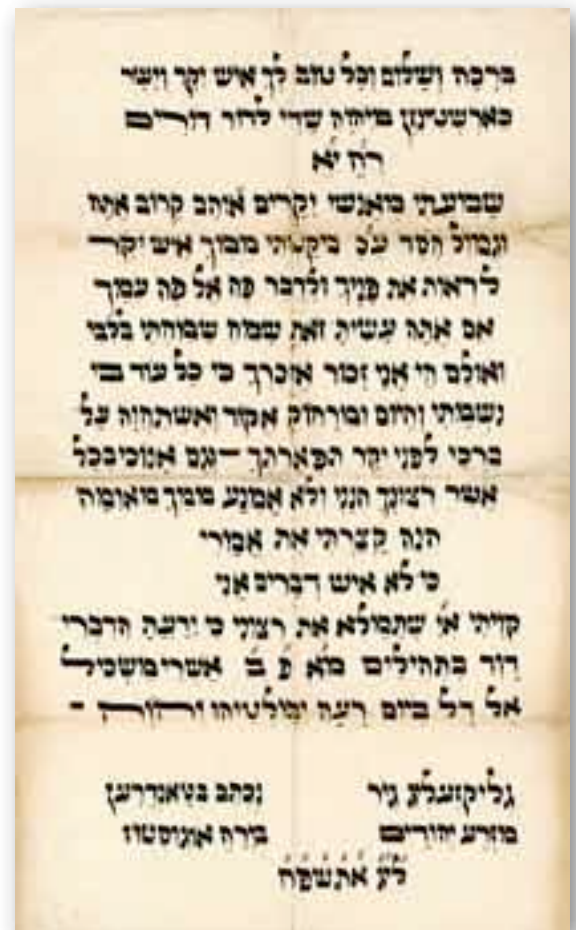 ברכה ושלום וכל טוב לך איש יקר ויושר
מיהוה שדי לדור דורים
שמועתי מאנשי יקרים איהם קרוב אתה
וגמול חסד ע"כ ביקשתי ממך איש יקר
לראות את פניך ולדבר פה אל פה עמך
אם אתה עשית זאת שמח שמחתי בלבי
ואולם חי אני זכור אזכרך כי כל עוד בי
נשמתי והיום ומרחוק אקוד ואשתחוה על
ברכי לפני יקר תפארתך – גם אנוכי בכל
אשר רצונך הנני ולא אמנע ממך מאומה
הנה קצרתי את אמורי
כי לא איש דברים אני
קויתי שתמולא את רצוני כי ידעת הדברי
דוד בתהילים מא פ ב אשרי משכיל
אל דל ביום רעה ימלטיהו
גיר נכתב
מזרע יהודים בירח אויגוסטוז